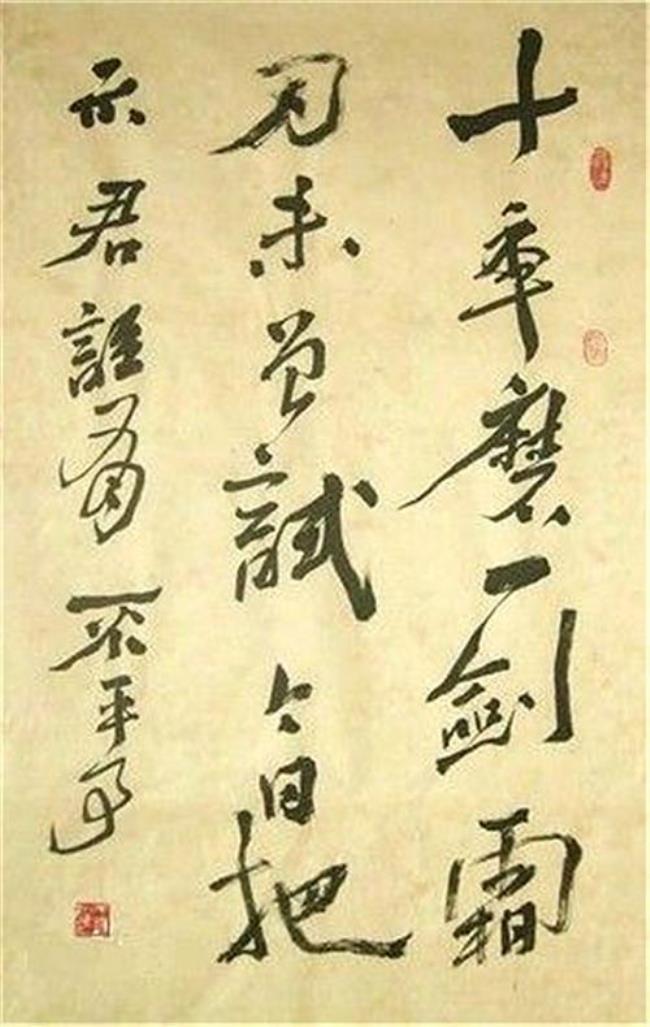 十年磨一劍霜
刃未曾試今日把
示君誰有不平事